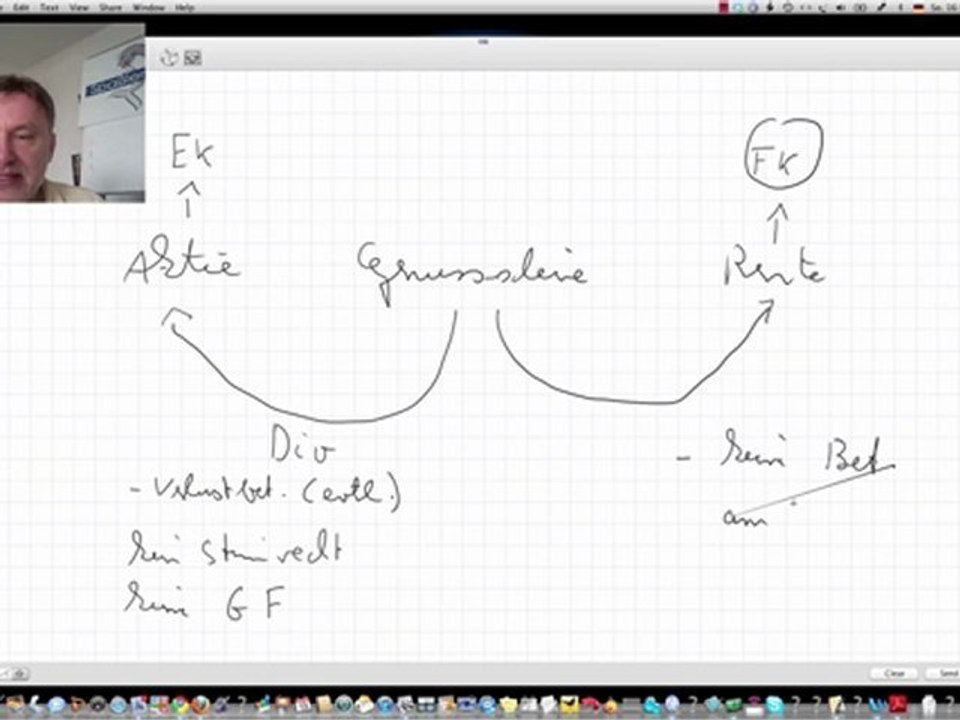 Edit Text View Share Window Help
EK
FK
Aktie Genussscheine Rente
Div
- Verlustbet. (evtl.)
kein Stimmrecht
keine GF
- keine Bet
am
Clear Send